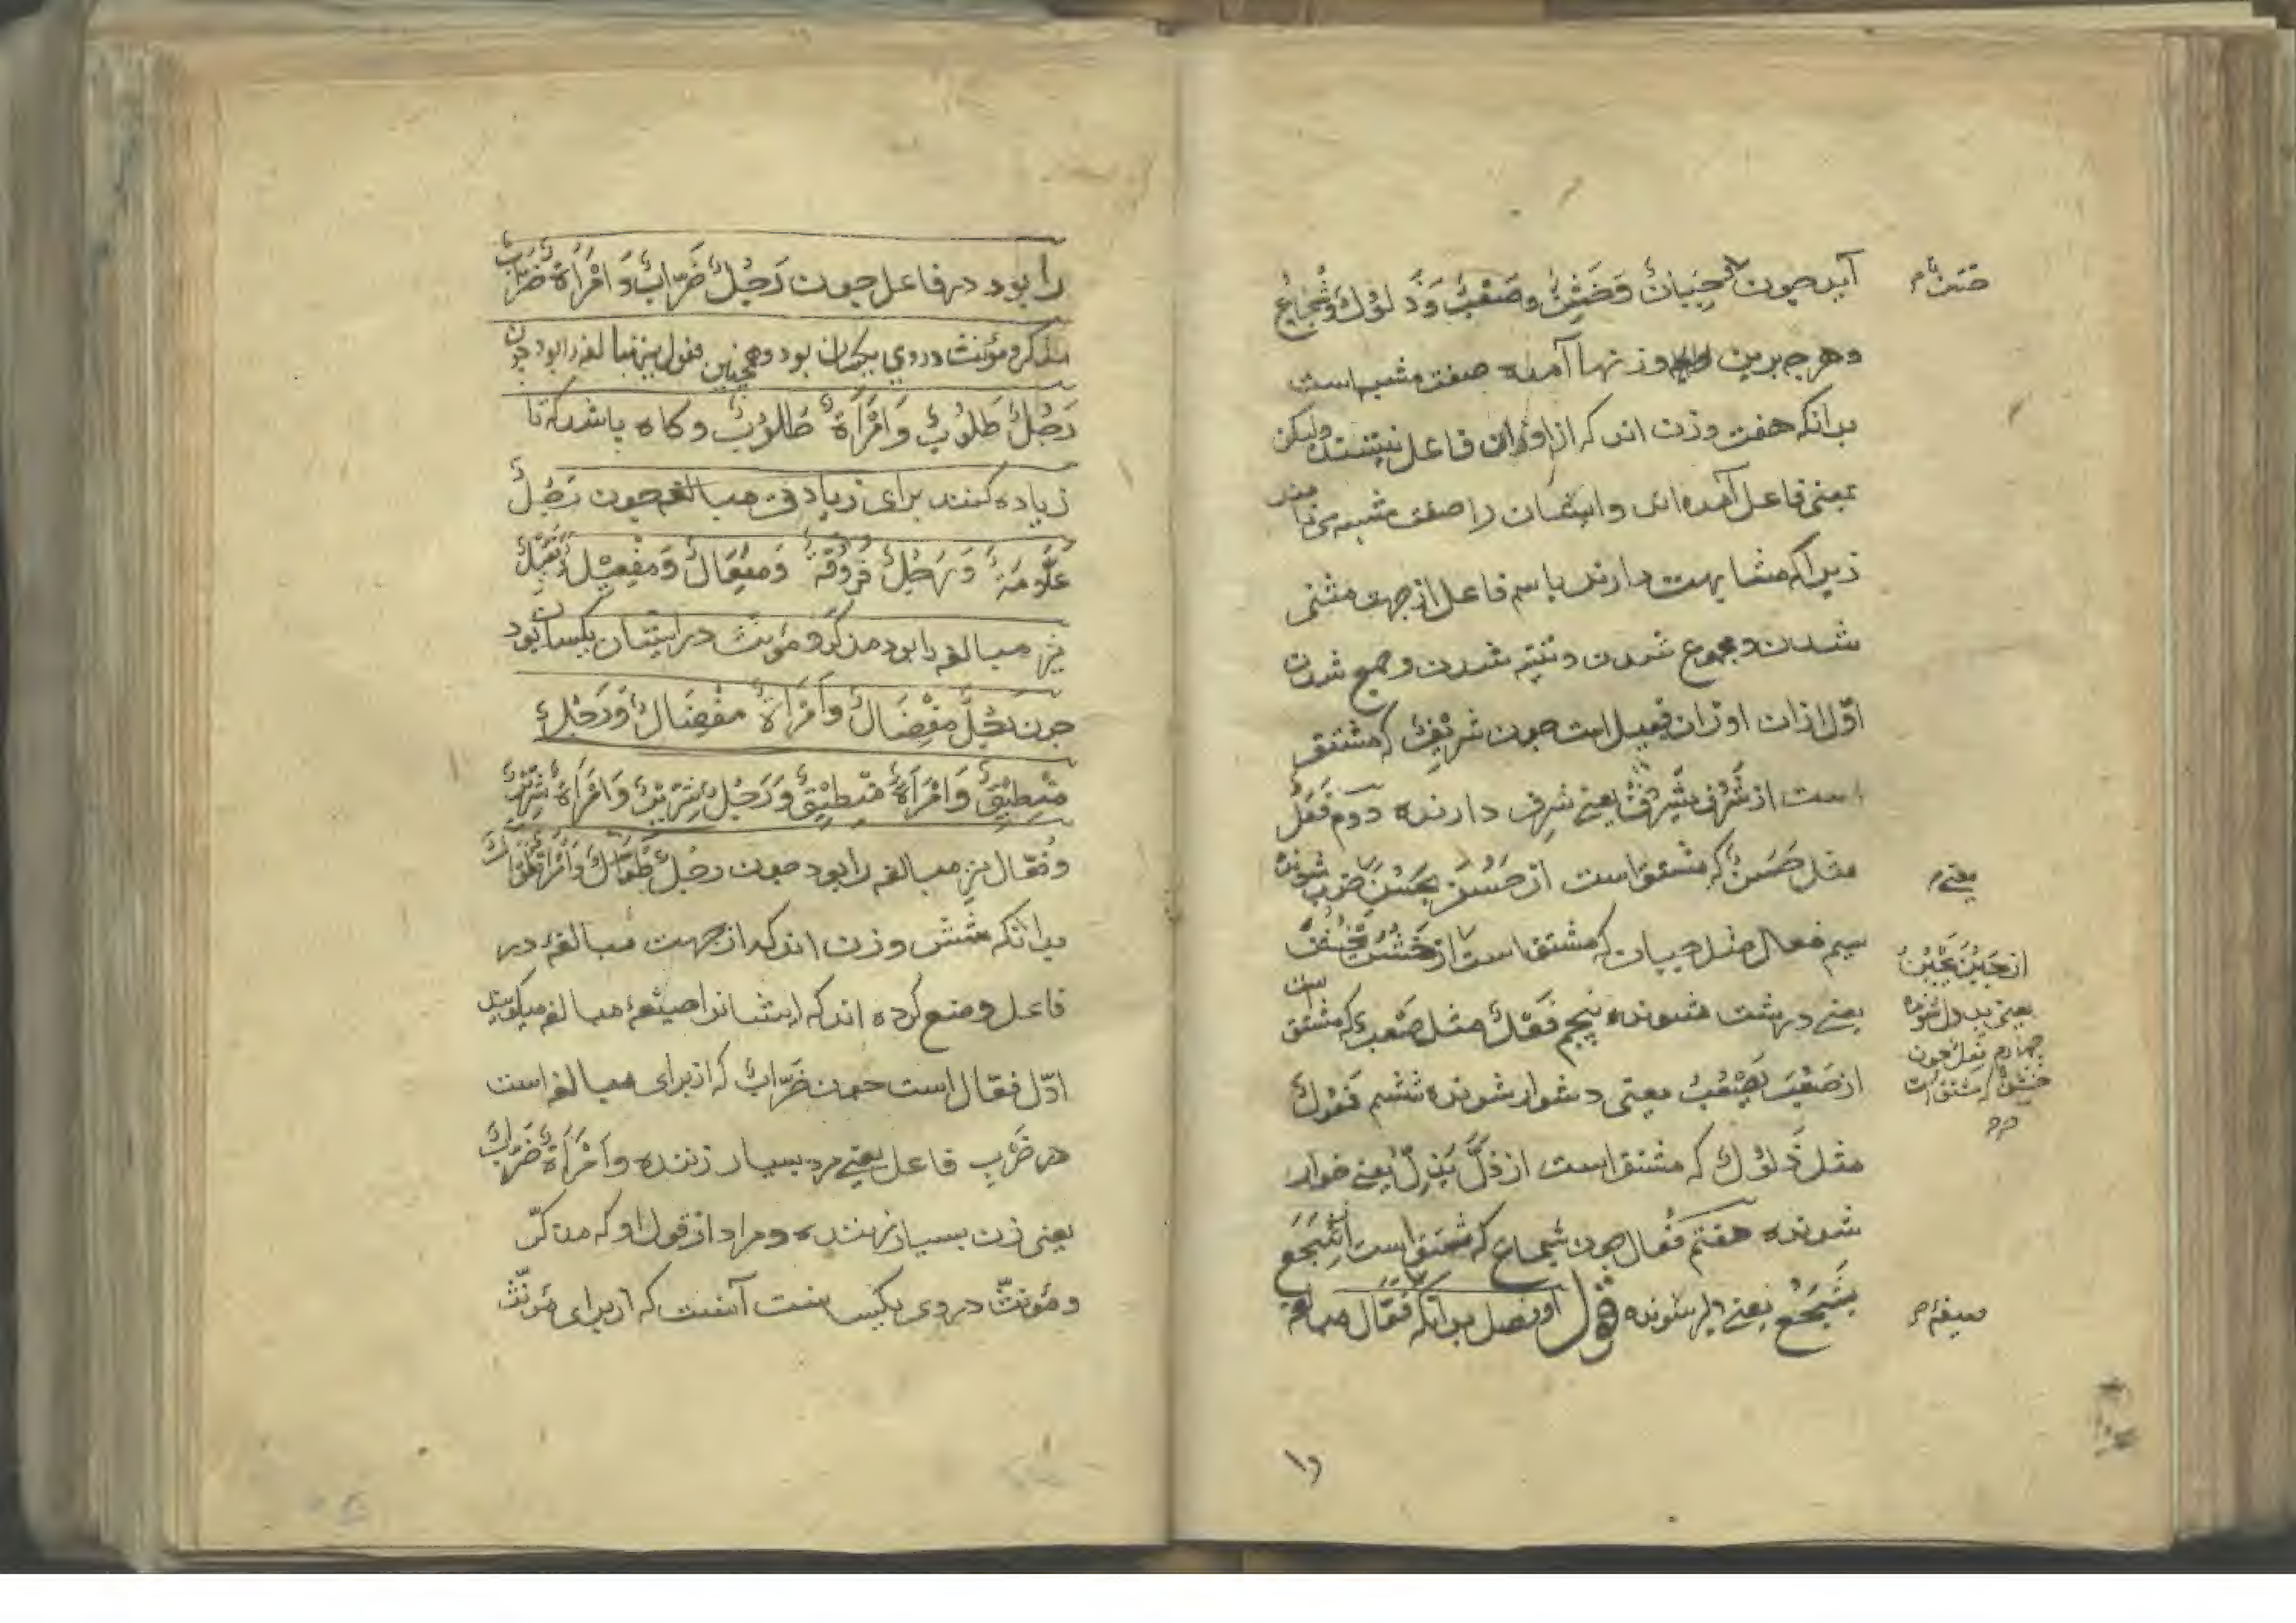 آید چون جَبَانٌ وَخَشِنٌ وصَعْبٌ وَذَلُوْلٌ وَشُجَاعٌ
وهرچه برین وزنها آمده صفت مشبه است
بدانکه هفت وزن اند که از اوزان فاعل نیستند ولیکن
بمعنی فاعل آمده اند وایشان را صفت مشبهه می نامند
زیراکه مشابهت دارند با اسم فاعل از جهت مثنی
شدن ومجموع شدن و تثنیه شدن وجمع شدن
اوّل ازان اوزان فعیل است چون شَرِیْفٌ که مشتق
است از شَرُفَ یَشْرُفُ یعنی شرف دارنده دوم فَعَلٌ
مثل حَسَنٌ که مشتق است از حَسُنَ یَحْسُنُ خوب شونده
سیم فعال مثل جبان که مشتق است از خَشُنَ یَخْشُنُ
یعنی درشت شونده پنجم فَعْلٌ مثل صَعْبٌ که مشتق است
از صَعُبَ یَصْعُبُ یعنی دشوار شونده ششم فَعُوْلٌ
مثل ذَلُوْلٌ که مشتق است از ذَلَّ یَذِلُّ یعنی خوار
شونده هفتم فُعَال چون شجاع که مشتق است از شَجُعَ
یَشْجُعُ یعنی دلیر شونده قول او فصل بدانکه فَعّال مبالغه
یعنی م
از جَبُنَ یَجْبُنُ
یعنی بددل شونده
چهارم فَعِلٌ چون
خَشِنٌ که مشتق است
صیغه م
را بود در فاعل چون رَجُلٌ ضَرَّابٌ وَامْرَأَةٌ ضَرَّابٌ
مذکر ومؤنث دروي یکسان بود وهمچنین فعول نیز مبالغه را بود چون
رَجُلٌ طَلُوْبٌ وَامْرَأَةٌ طَلُوْبٌ و کاه باشد که تا
زیاده کنند برای زیادتی مبالغه چون رَجُلٌ
عَلَّامَةٌ وَرَجُلٌ فَرُوْقَةٌ وَمِفْعَالٌ وَمِفْعِیْلٌ وَفِعِّیْلٌ
نیز مبالغه را بود مذکر و مؤنث در ایشان یکسان بود
چون رَجُلٌ مِفْضَالٌ وَامْرَأَةٌ مِفْضَالٌ وَرَجُلٌ
مِنْطِیْقٌ وَامْرَأَةٌ مِنْطِیْقٌ وَرَجُلٌ شِرِّیْرٌ وَامْرَأَةٌ شِرِّیْرٌ
وفُعّال نیز مبالغه را بود چون رجُلٌ طُوَّالٌ وَامْرَأَةٌ طُوَّالٌ
بدانکه شش وزن اند که از جهت مبالغه در
فاعل وضع کرده اند که ایشانرا صیغهٔ مبالغه میکویند
اوّل فعّال است چون ضَرَّابٌ که از برای مبالغه است
در ضَرْبِ فاعل یعنی مرد بسیار زننده وَامْرَأَةٌ ضَرَّابٌ
یعنی زن بسیار زننده ومراد از قول او که مذکّر
ومؤنثّ دروی یکسانست آنست که از برای مؤنّث